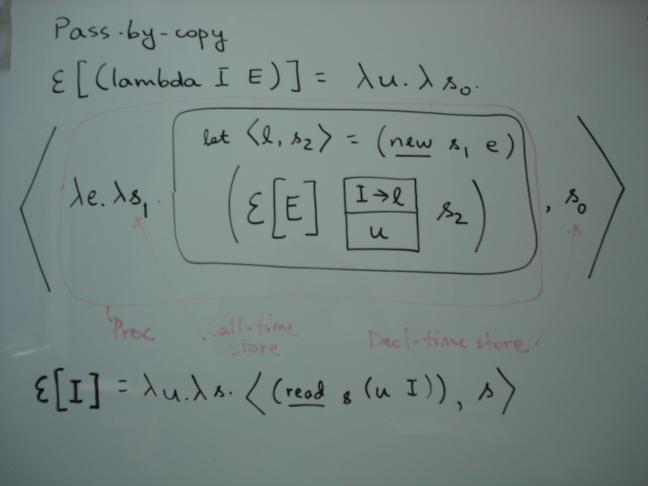 Pass-by-copy
ℰ[(lambda I E)] = λu.λs₀.
let ⟨l, s₂⟩ = (new s₁ e)
⟨ λe.λs₁. (ℰ[E] I→l u s₂) , s₀ ⟩
Proc Call-time store Decl-time store
ℰ[I] = λu.λs. ⟨(read s (u I)), s⟩